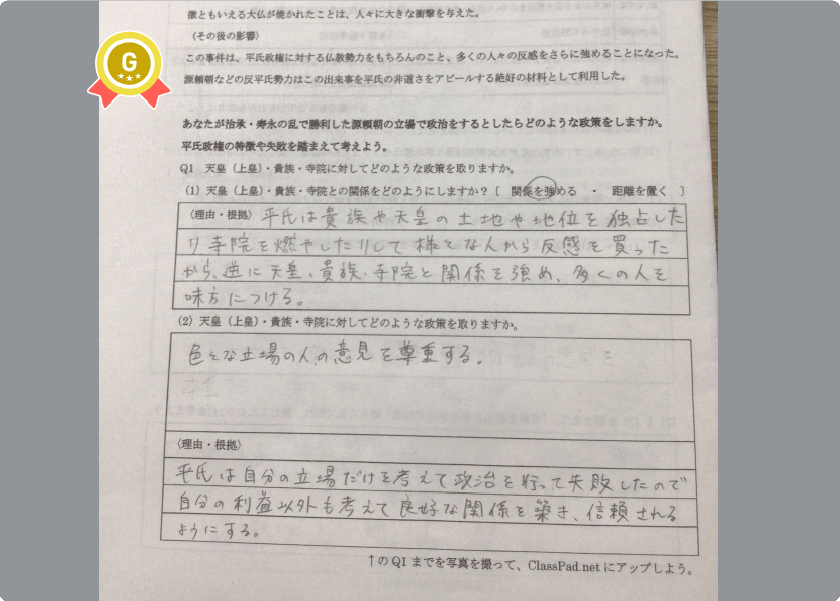 徴ともいえる大仏が焼かれたことは、人々に大きな衝撃を与えた。
〈その後の影響〉
この事件は、平氏政権に対する仏教勢力をもちろんのこと、多くの人々の反感をさらに強めることになった。
源頼朝などの反平氏勢力はこの出来事を平氏の非道さをアピールする絶好の材料として利用した。
G
あなたが治承・寿永の乱で勝利した源頼朝の立場で政治をするとしたらどのような政策をしますか。
平氏政権の特徴や失敗を踏まえて考えよう。
Q1 天皇(上皇)・貴族・寺院に対してどのような政策を取りますか。
(1) 天皇(上皇)・貴族・寺院との関係をどのようにしますか?〔 関係を強める ・ 距離を置く 〕
〈理由・根拠〉平氏は貴族や天皇の土地や地位を独占した
り寺院を燃やしたりして様々な人から反感を買った
から、逆に天皇、貴族・寺院と関係を強め、多くの人を
味方につける。
(2) 天皇(上皇)・貴族・寺院に対してどのような政策を取りますか。
色々な立場の人の意見を尊重する。
〈理由・根拠〉
平氏は自分の立場だけを考えて政治を行って失敗したので
自分の利益以外も考えて良好な関係を築き、信頼される
ようにする。
↑のQ1までを写真を撮って、ClassPad.netにアップしよう。